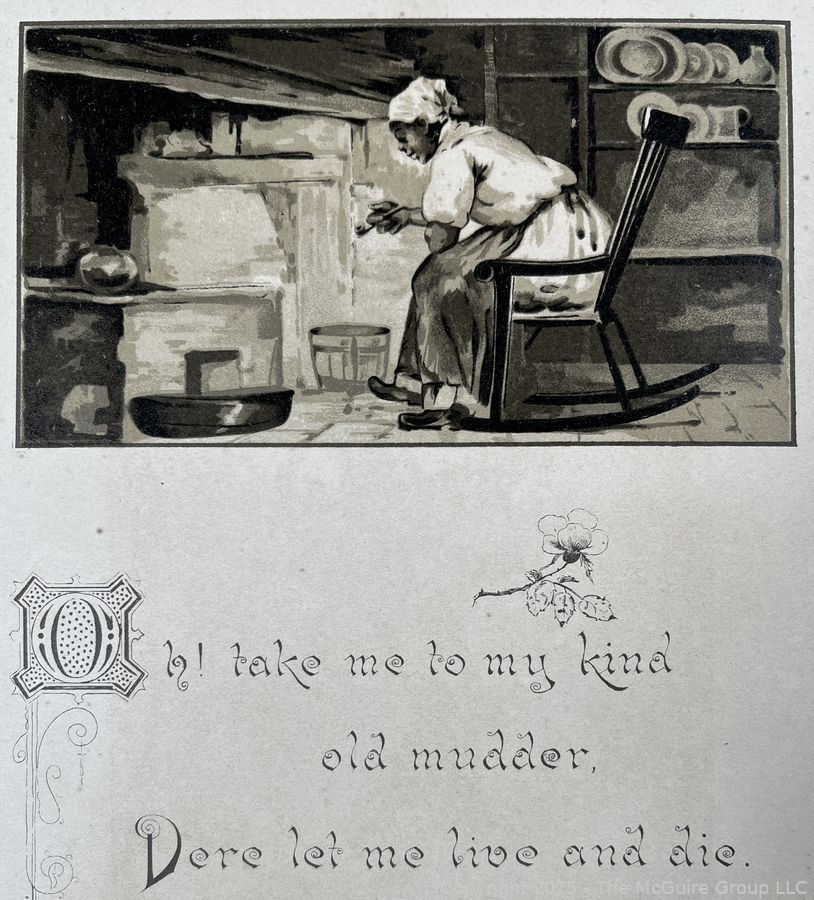 Oh! take me to my kind
old mudder,
Dere let me live and die.
Copyright 2025 - The McGuire Group LLC